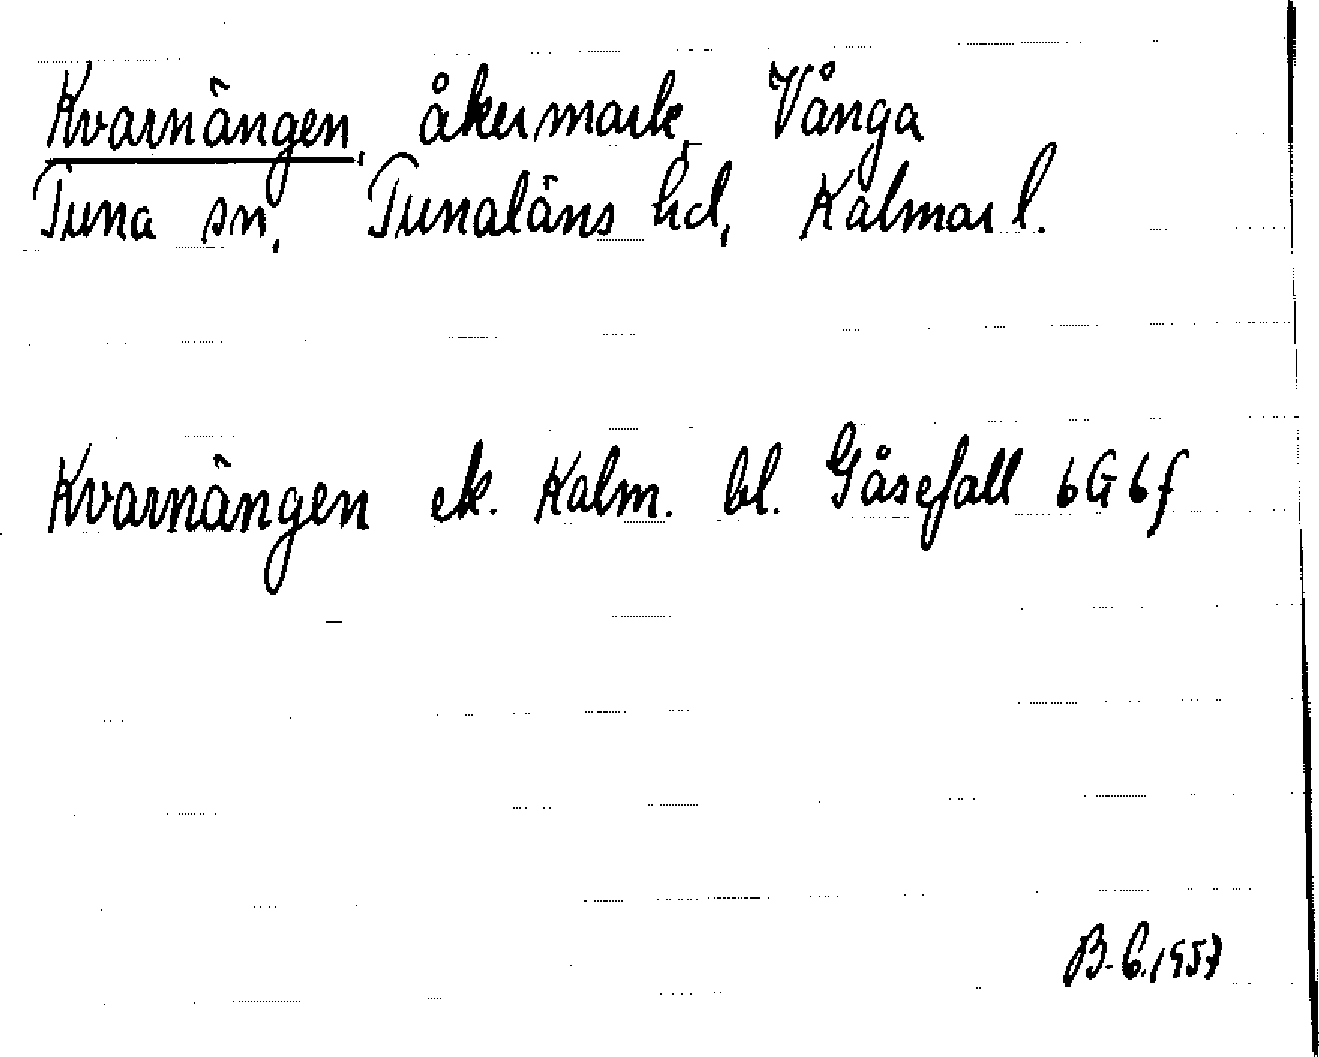 Kvarnängen, åkermark, Vånga
Tuna sn, Tunaläns hd, Kalmar l.
Kvarnängen ek. Kalm. bl. Gåsefall 6G6f
B.C. 1957